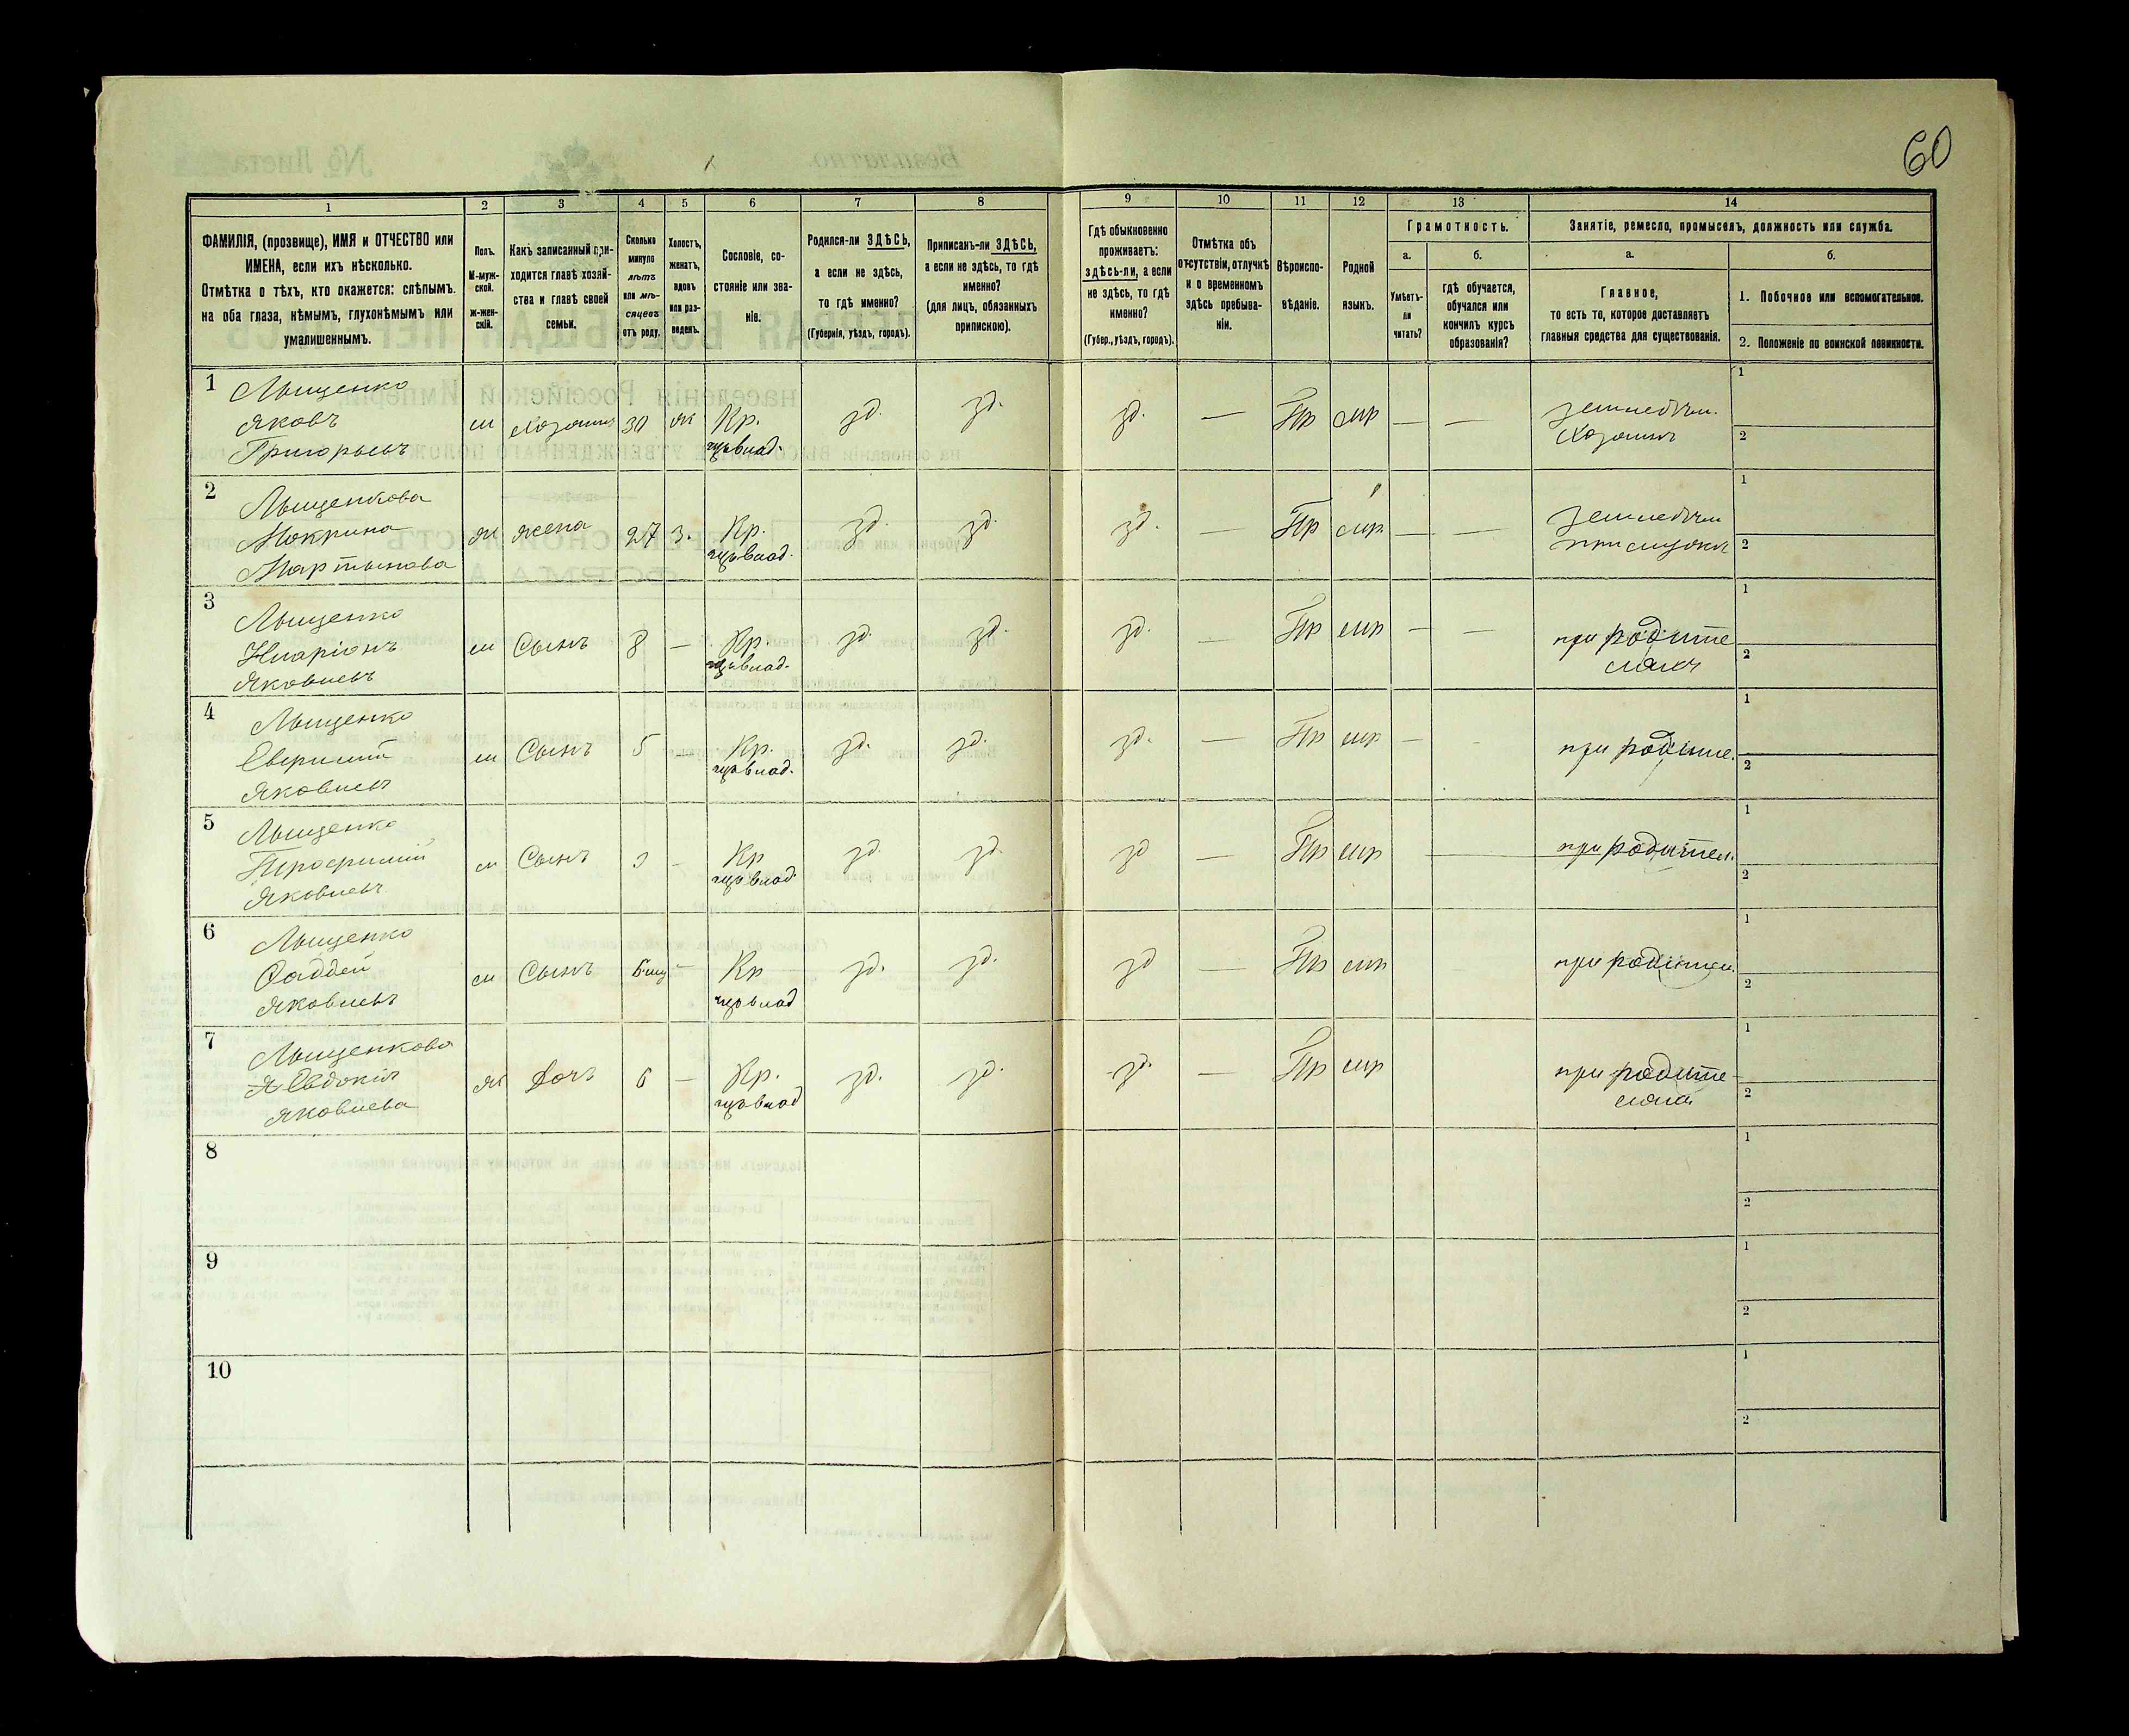 60
1
2
3
4
5
6
7
8
9
10
11
12
13
14
ФАМИЛІЯ, (прозвище), ИМЯ и ОТЧЕСТВО или
ИМЕНА, если ихъ нѣсколько.
Отмѣтка о тѣхъ, кто окажется: слѣпымъ.
на оба глаза, нѣмымъ, глухонѣмымъ или
умалишеннымъ.
Полъ.
М-муж-
ской.
ж-жен-
скій.
Какъ записанный при-
ходится главѣ хозяй-
ства и главѣ своей
семьи.
Сколько
минуло
лѣтъ
или мѣ-
сяцевъ
отъ роду.
Холостъ,
женатъ,
вдовъ
или раз-
веденъ.
Сословіе, со-
стояніе или зва-
ніе.
Родился-ли ЗДѢСЬ,
а если не здѣсь,
то гдѣ именно?
(Губернія, уѣздъ, городъ).
Приписанъ-ли ЗДѢСЬ,
а если не здѣсь, то гдѣ
именно?
(для лицъ, обязанныхъ
припискою).
Гдѣ обыкновенно
проживаетъ:
здѣсь-ли, а если
не здѣсь, то гдѣ
именно?
(Губер., уѣздъ, городъ).
Отмѣтка объ
отсутствіи, отлучкѣ
и о временномъ
здѣсь пребыва-
ніи.
Вѣроиспо-
вѣданіе.
Родной
языкъ.
Грамотность.
а.
Умѣетъ-
ли
читать?
б.
гдѣ обучается,
обучался или
кончилъ курсъ
образованія?
Занятіе, ремесло, промыселъ, должность или служба.
а.
Главное,
то есть то, которое доставляетъ
главныя средства для существованія.
б.
1. Побочное или вспомогательное.
2. Положеніе по воинской повинности.
1 Лыщенко
Яковъ
Григорьевъ
м Хозяинъ 30 ж Кр.
зд. зд. зд. — Пр мр — —
Хозяинъ
1
2
2 Лыщенкова
Мокрина
Мартынова
ж жена 27 з. Кр.
зд. зд. зд. — Пр мр. — —
1
2
3 Лыщенко
Иларіонъ
Яковлевъ
м Сынъ 8 — Кр.
зд. зд. зд. — Пр мр — —
при родите
ляхъ
1
2
4 Лыщенко
Яковлевъ
м Сынъ 5 — Кр.
зд. зд. зд. — Пр мр — -
при родите.
1
2
5 Лыщенко
Яковлевъ
м Сынъ 3 - Кр
зд. зд. зд — Пр мр
при родител.
1
2
6 Лыщенко
Фаддей
Яковлевъ
м Сынъ — Кр
зд. зд. зд — Пр мр
при родител.
1
2
7 Лыщенкова
Евдокія
Яковлева
ж Дочь 6 — Кр.
зд. зд. зд. — Пр мр
при родите-
ляхъ
1
2
8
1
2
9
1
2
10
1
2